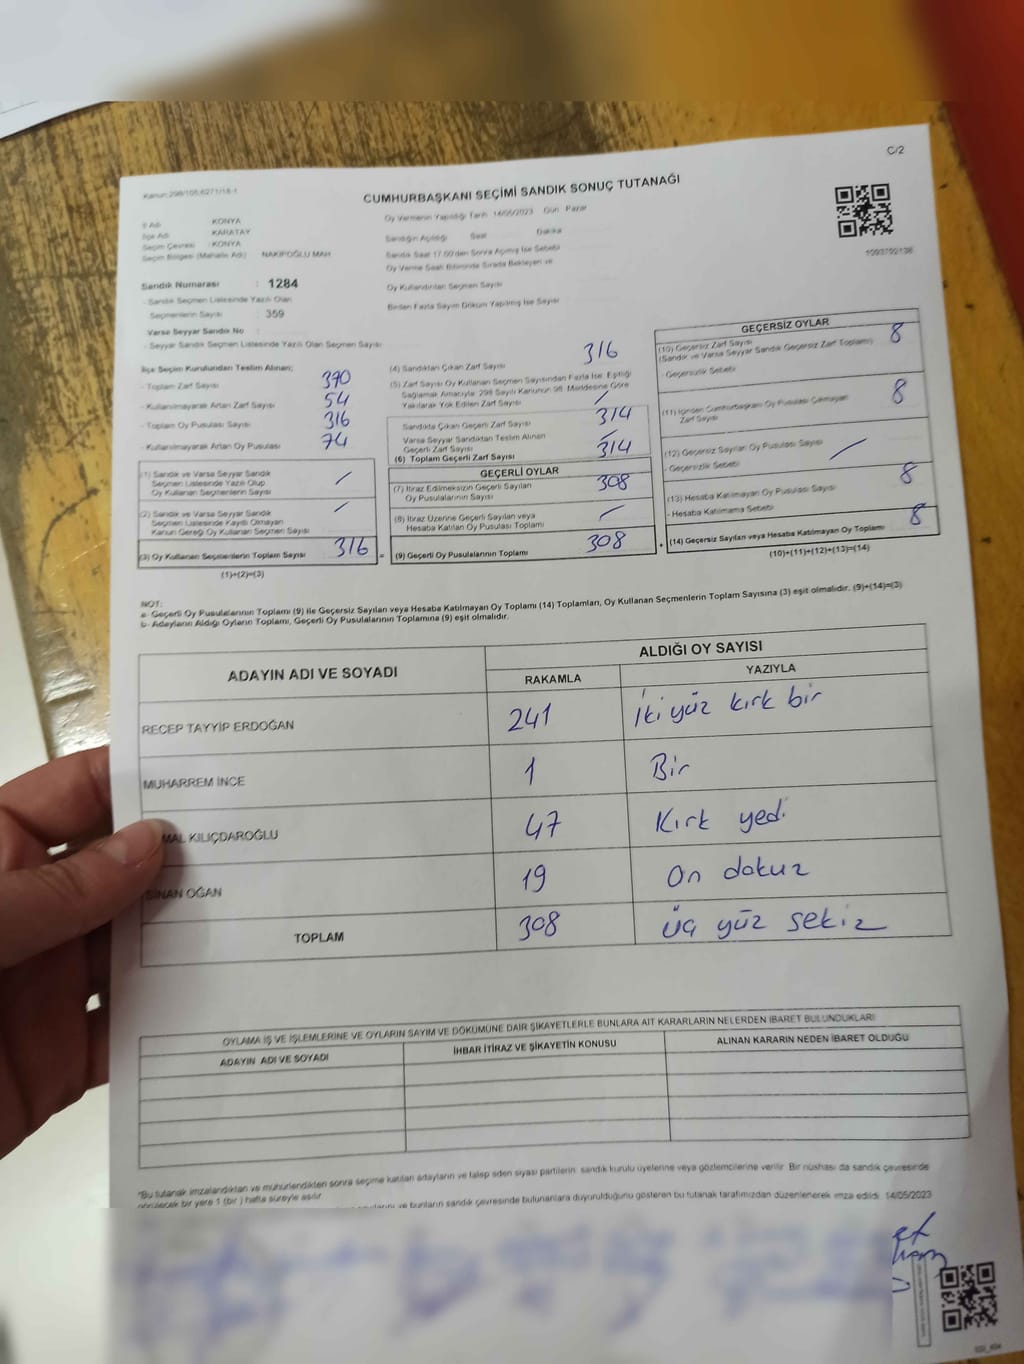 C/2
Kanun:298/105,6271/18-1
CUMHURBAŞKANI SEÇİMİ SANDIK SONUÇ TUTANAĞI
Oy Vermenin Yapıldığı Tarih 14/05/2023 Gün Pazar
İl Adı KONYA
İlçe Adı KARATAY
Seçim Çevresi : KONYA
Seçim Bölgesi (Mahalle Adı) NAKİPOĞLU MAH
Sandığın Açıldığı Saat Dakika
Sandık Saat 17.00'den Sonra Açılmış İse Sebebi
Oy Verme Saati Bitiminde Sırada Bekleyen ve
Oy Kullandırılan Seçmen Sayısı
Birden Fazla Sayım Döküm Yapılmış İse Sayısı
1093792138
Sandık Numarası : 1284
- Sandık Seçmen Listesinde Yazılı Olan
Seçmenlerin Sayısı : 359
Varsa Seyyar Sandık No :
- Seyyar Sandık Seçmen Listesinde Yazılı Olan Seçmen Sayısı
İlçe Seçim Kurulundan Teslim Alınan;
- Toplam Zarf Sayısı 390
- Kullanılmayarak Artan Zarf Sayısı 54
- Toplam Oy Pusulası Sayısı 316
- Kullanılmayarak Artan Oy Pusulası 74
(1) Sandık ve Varsa Seyyar Sandık
Seçmen Listesinde Yazılı Olup
Oy Kullanan Seçmenlerin Sayısı /
(2) Sandık ve Varsa Seyyar Sandık
Seçmen Listesinde Kayıtlı Olmayan
Kanun Gereği Oy Kullanan Seçmenlerin Sayısı /
(3) Oy Kullanan Seçmenlerin Toplam Sayısı 316 =
(1)+(2)=(3)
(4) Sandıktan Çıkan Zarf Sayısı 316
(5) Zarf Sayısı Oy Kullanan Seçmen Sayısından Fazla İse, Eşitliği
Sağlamak Amacıyla 298 Sayılı Kanunun 98. Maddesine Göre
Yakılarak Yok Edilen Zarf Sayısı /
Sandıkta Çıkan Geçerli Zarf Sayısı 314
Varsa Seyyar Sandıktan Teslim Alınan
Geçerli Zarf Sayısı /
(6) Toplam Geçerli Zarf Sayısı 314
GEÇERLİ OYLAR
(7) İtiraz Edilmeksizin Geçerli Sayılan
Oy Pusulalarının Sayısı 308
(8) İtiraz Üzerine Geçerli Sayılan veya
Hesaba Katılan Oy Pusulası Toplamı /
(9) Geçerli Oy Pusulalarının Toplamı 308 +
GEÇERSİZ OYLAR
(10) Geçersiz Zarf Sayısı
(Sandık ve Varsa Seyyar Sandık Geçersiz Zarf Toplamı) 8
- Geçersizlik Sebebi
(11) İçinden Cumhurbaşkanı Oy Pusulası Çıkmayan
Zarf Sayısı 8
(12) Geçersiz Sayılan Oy Pusulası Sayısı /
- Geçersizlik Sebebi
(13) Hesaba Katılmayan Oy Pusulası Sayısı 8
- Hesaba Katılmama Sebebi
(14) Geçersiz Sayılan veya Hesaba Katılmayan Oy Toplamı 8
(10)+(11)+(12)+(13)=(14)
NOT:
a- Geçerli Oy Pusulalarının Toplamı (9) ile Geçersiz Sayılan veya Hesaba Katılmayan Oy Toplamı (14) Toplamları, Oy Kullanan Seçmenlerin Toplam Sayısına (3) eşit olmalıdır. (9)+(14)=(3)
b- Adayların Aldığı Oyların Toplamı, Geçerli Oy Pusulalarının Toplamına (9) eşit olmalıdır.
ADAYIN ADI VE SOYADI ALDIĞI OY SAYISI
RAKAMLA YAZIYLA
RECEP TAYYİP ERDOĞAN 241 İki yüz kırk bir
MUHARREM İNCE 1 Bir
MAL KILIÇDAROĞLU 47 Kırk yedi
SİNAN OĞAN 19 On dokuz
TOPLAM 308 üç yüz sekiz
OYLAMA İŞ VE İŞLEMLERİNE VE OYLARIN SAYIM VE DÖKÜMÜNE DAİR ŞİKAYETLERLE BUNLARA AİT KARARLARIN NELERDEN İBARET BULUNDUKLARI
ADAYIN ADI VE SOYADI İHBAR İTİRAZ VE ŞİKAYETİN KONUSU ALINAN KARARIN NEDEN İBARET OLDUĞU
*Bu tutanak imzalandıktan ve mühürlendikten sonra seçime katılan adayların ve talep eden siyasi partilerin sandık kurulu üyelerine veya gözlemcilerine verilir. Bir nüshası da sandık çevresinde
görülecek bir yere 1 (bir) hafta süreyle asılır
ve bunların sandık çevresinde bulunanlara duyurulduğunu gösteren bu tutanak tarafımızdan düzenlenerek imza edildi. 14/05/2023